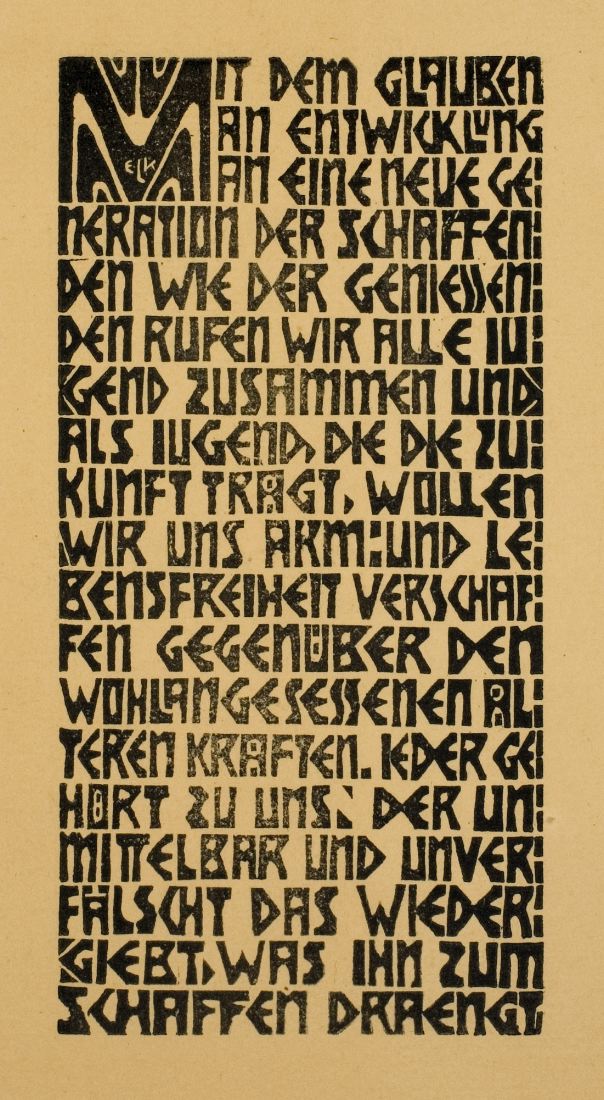 MIT DEM GLAUBEN
AN ENTWICKLUNG
AN EINE NEUE GE:
NERATION DER SCHAFFEN:
DEN WIE DER GENIESSEN:
DEN RUFEN WIR ALLE IU:
GEND ZUSAMMEN UND
ALS IUGEND, DIE DIE ZU:
KUNFT TRÄGT, WOLLEN
WIR UNS ARM: UND LE:
BENSFREIHEIT VERSCHAF:
FEN GEGENÜBER DEN
WOHLANGESESSENEN ÄL:
TEREN KRÄFTEN. IEDER GE:
HÖRT ZU UNS: DER UN:
MITTELBAR UND UNVER:
FÄLSCHT DAS WIEDER:
GIEBT, WAS IHN ZUM
SCHAFFEN DRAENGT
ELK